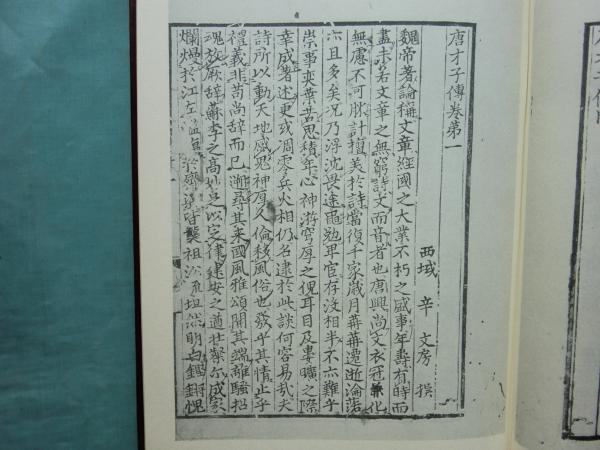 唐才子傳卷第一
西域 辛 文房 撰
魏帝著論稱文章經國之大業不朽之盛事年壽有時而
盡未若文章之無窮詩文而音者也唐興尚文衣冠兼化
無慮不可勝計擅美於詩當復千家歲月苒苒遷逝淪落
亦且多矣況乃浮沈畏途黽勉卑官存沒相半不亦難乎
崇事奕葉苦思積年心神游穹厚之倪耳目及晏曠之際
幸成著述更或凋零兵火相仍名逮於此談何容易哉夫
詩所以動天地感鬼神厚人倫移風俗也發乎其情止乎
禮義非苟尚辞而已遡尋其来國風雅頌開其端離騷招
魂放厥辞蘇李之高妙足以定律建安之遒壯粲尔成家
爛熳於江左濫觴於齊梁皆襲祖沿流坦然明白鏗鏘愧
唐才子傳